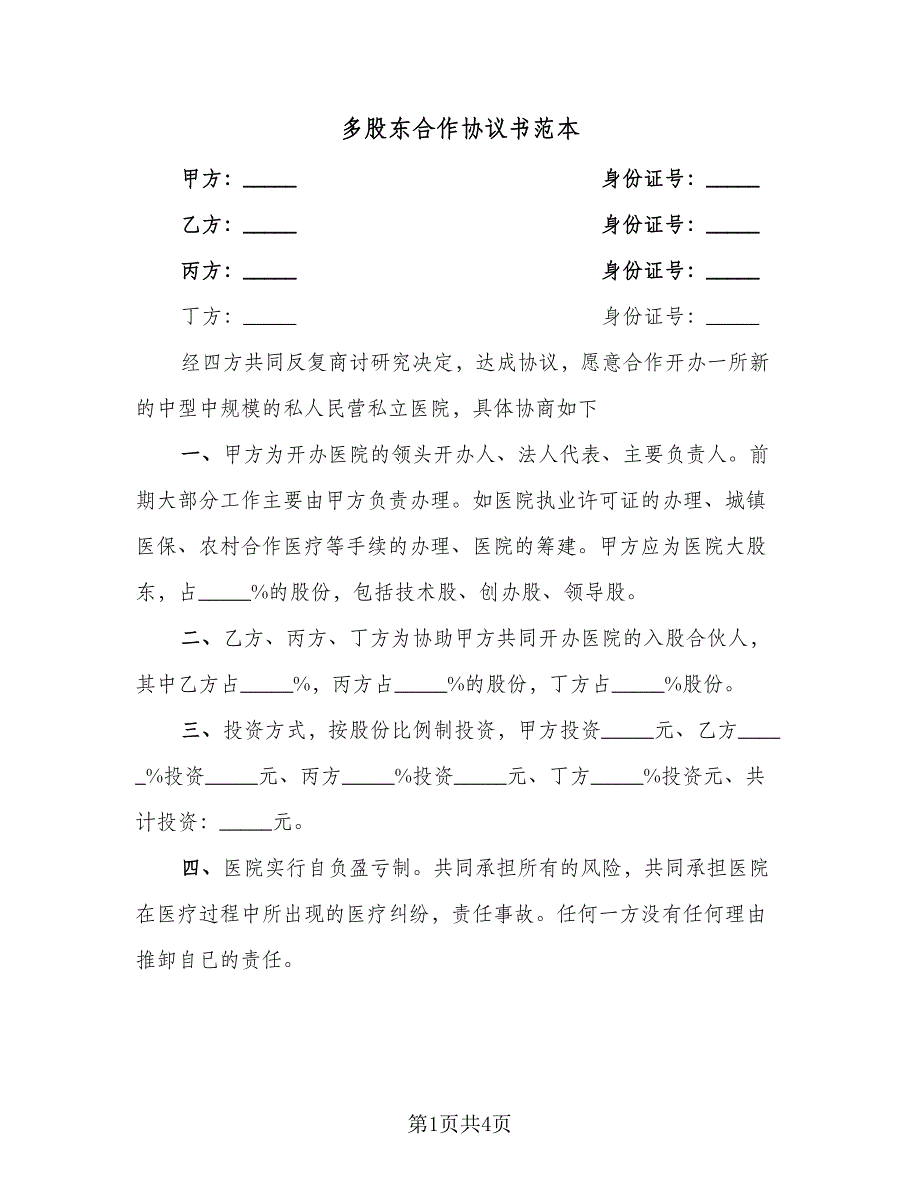 多股东合作协议书范本
甲方：_____ 身份证号：_____
乙方：_____ 身份证号：_____
丙方：_____ 身份证号：_____
丁方：_____ 身份证号：_____
经四方共同反复商讨研究决定，达成协议，愿意合作开办一所新
的中型中规模的私人民营私立医院，具体协商如下
一、甲方为开办医院的领头开办人、法人代表、主要负责人。前
期大部分工作主要由甲方负责办理。如医院执业许可证的办理、城镇
医保、农村合作医疗等手续的办理、医院的筹建。甲方应为医院大股
东，占_____%的股份，包括技术股、创办股、领导股。
二、乙方、丙方、丁方为协助甲方共同开办医院的入股合伙人，
其中乙方占_____%，丙方占_____%的股份，丁方占_____%股份。
三、投资方式，按股份比例制投资，甲方投资_____元、乙方____
_%投资_____元、丙方_____%投资_____元、丁方_____%投资元、共
计投资：_____元。
四、医院实行自负盈亏制。共同承担所有的风险，共同承担医院
在医疗过程中所出现的医疗纠纷，责任事故。任何一方没有任何理由
推卸自己的责任。
第1页共4页